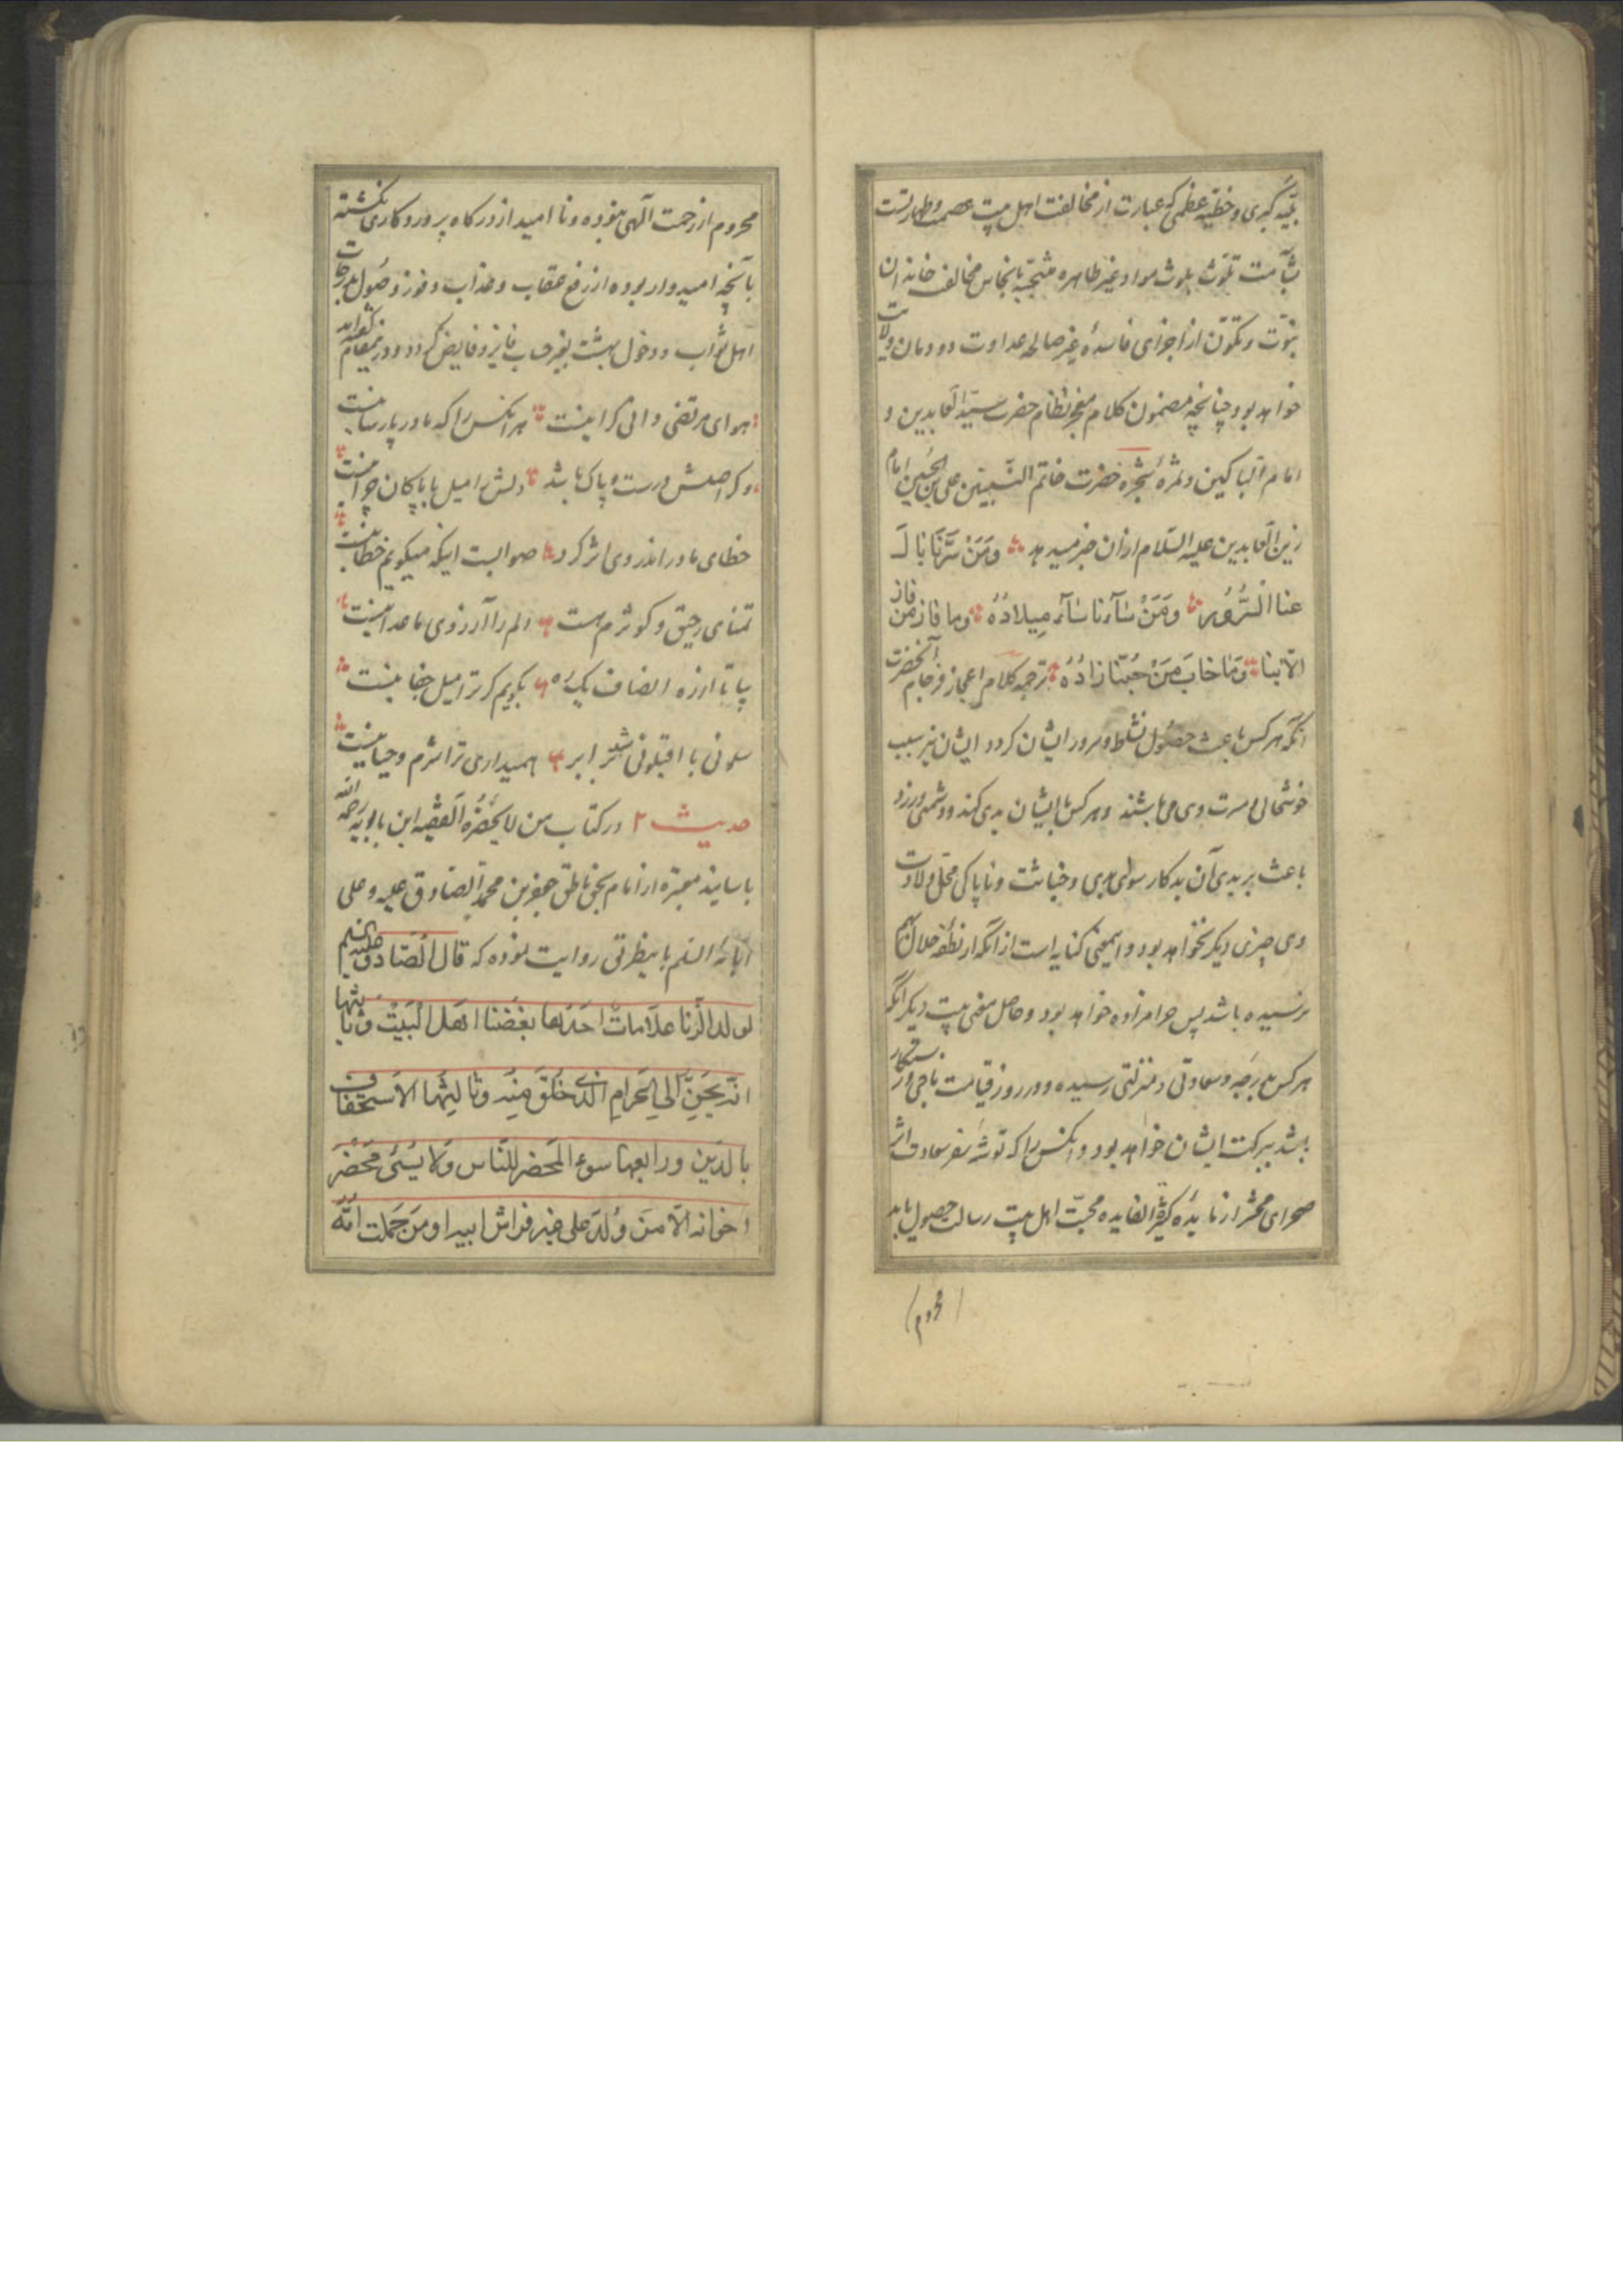 بلیّه کبری و خطیّه عظمی که عبارت از مخالفت اهل بیت عصمت و طهارتست
بشآمت تلوّث بلوث مواد غیر طاهره بانجاس مخالف خاندان
نبوّت و تکوّن از اجزای فاسدهٔ غیر صالحه عداوت دودمان ولایت
خواهد بود چنانچه مضمون کلام معجز نظام حضرت سیّد العابدین و
امام الباکین و ثمرهٔ شجرهٔ حضرت خاتم النّبیین علی بن الحسین امام
زین العابدین علیه السّلام ازان خبر میدهد وَمَنْ سَرَّنَا نَالَ
منا السُّرُور وَمَنْ سَآءَنا سَآءَ مِیلادُهُ وما فاز من فاز
الّا بنا وَمَا خابَ مَنْ حُبّنا زادُهُ ترجمه کلام اعجاز فرجام آنحضرت
آنکه هر کس باعث حصول نشاط و سرور ایشان کردد ایشان نیز سبب
خوشحالی و مسرت وی می باشند و هر کس با ایشان بدی کند و دشمنی ورزد
باعث بر بدی آن بدکار سوای بدی و خباثت و ناپاکی محلّ ولادت
وی چیزی دیکر نخواهد بود و اینمعنی کنایه است از آنکه از نطفه حلال بهم
نرسیده باشد پس حرامزاده خواهد بود و حاصل معنی بیت دیکر آنکه
هر کس بدرجه و سعادتی و منزلتی رسیده و در روز قیامت ناجی و رستکار
باشد ببرکت ایشان خواهد بود و آنکس را که توشه سفر سعادت اثر
صحرای محشر از مائدهٔ کثیر الفایده محبّت اهل بیت رسالت حصول یابد
(محروم)
محروم از رحمت آلهی نبوده و نا امید از درکاه پروردکاری نکشته
بآنچه امیدوار بوده از رفع عقاب و عذاب و فوز وصول بدرجات
اهل ثواب و دخول بهشت بغیر حساب فایز و فایض کردد و در اینمقام گفته‌اند
هوای مرتضی دانی کرا نیست هر آنکس را که مادر پارسا نیست
و کر اصلش درست و پاک باشد دلش را میل با پاکان چرا نیست
خطای مادر اندر وی اثر کرد صوابست اینکه میکویم خطا نیست
تمنای رحیق و کوثرم هست دلم را آرزوی ما عدا نیست
بیا تا از ره انصاف یک ره بکویم کر ترا میل جفا نیست
سلونی با اقیلونی شد برابر همیداری ترا شرم و حیا نیست
حدیث ۲ در کتاب من لا یحضره الفقیه ابن بابویه رحمه الله
باسانید معتبره از امام بحق ناطق جعفر بن محمد الصّادق علیه و علی
آبائه السّلم باینطریق روایت نموده که قال الصّادق علیه السلم
لولد الزّنا علاماتٌ احَدُها بغضنا اهل البَیْت و ثانیها
انّه یَحِنُّ الی الحَرامِ الذی خُلِقَ مِنه وثالِثها الاستخفاف
بالدّین ورابعها سوء المَحضر للنّاس وَلا یُسئ مَحْضَر
اخوانه الّا مَن وُلدَ علی غیر فراش ابیه او مَن حَمَلت امّه